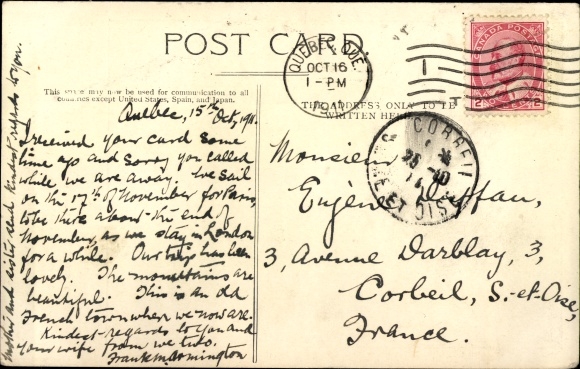 POST CARD
This space may now be used for communication to all
countries except United States, Spain, and Japan.
THE ADDRESS ONLY TO BE
WRITTEN HERE
QUEBEC, QUE.
OCT 16
1-PM
CANADA POSTAGE
2
CORBEIL
SEINE ET OISE
Quebec, 15th Oct, 1911.
I received your card some
time ago and sorry you called
while we are away. We sail
on the 17th of November for Paris,
to be there about the end of
November, as we stay in London
for a while. Our trip has been
lovely. The mountains are
beautiful. This is an old
French town where we now are.
Kindest regards to you and
your wife from we two.
Frank M. Armington
Mother and sister send kindest regards to you.
Monsieur
Eugène
3, Avenue Darblay, 3,
Corbeil, S.-et-Oise,
France.